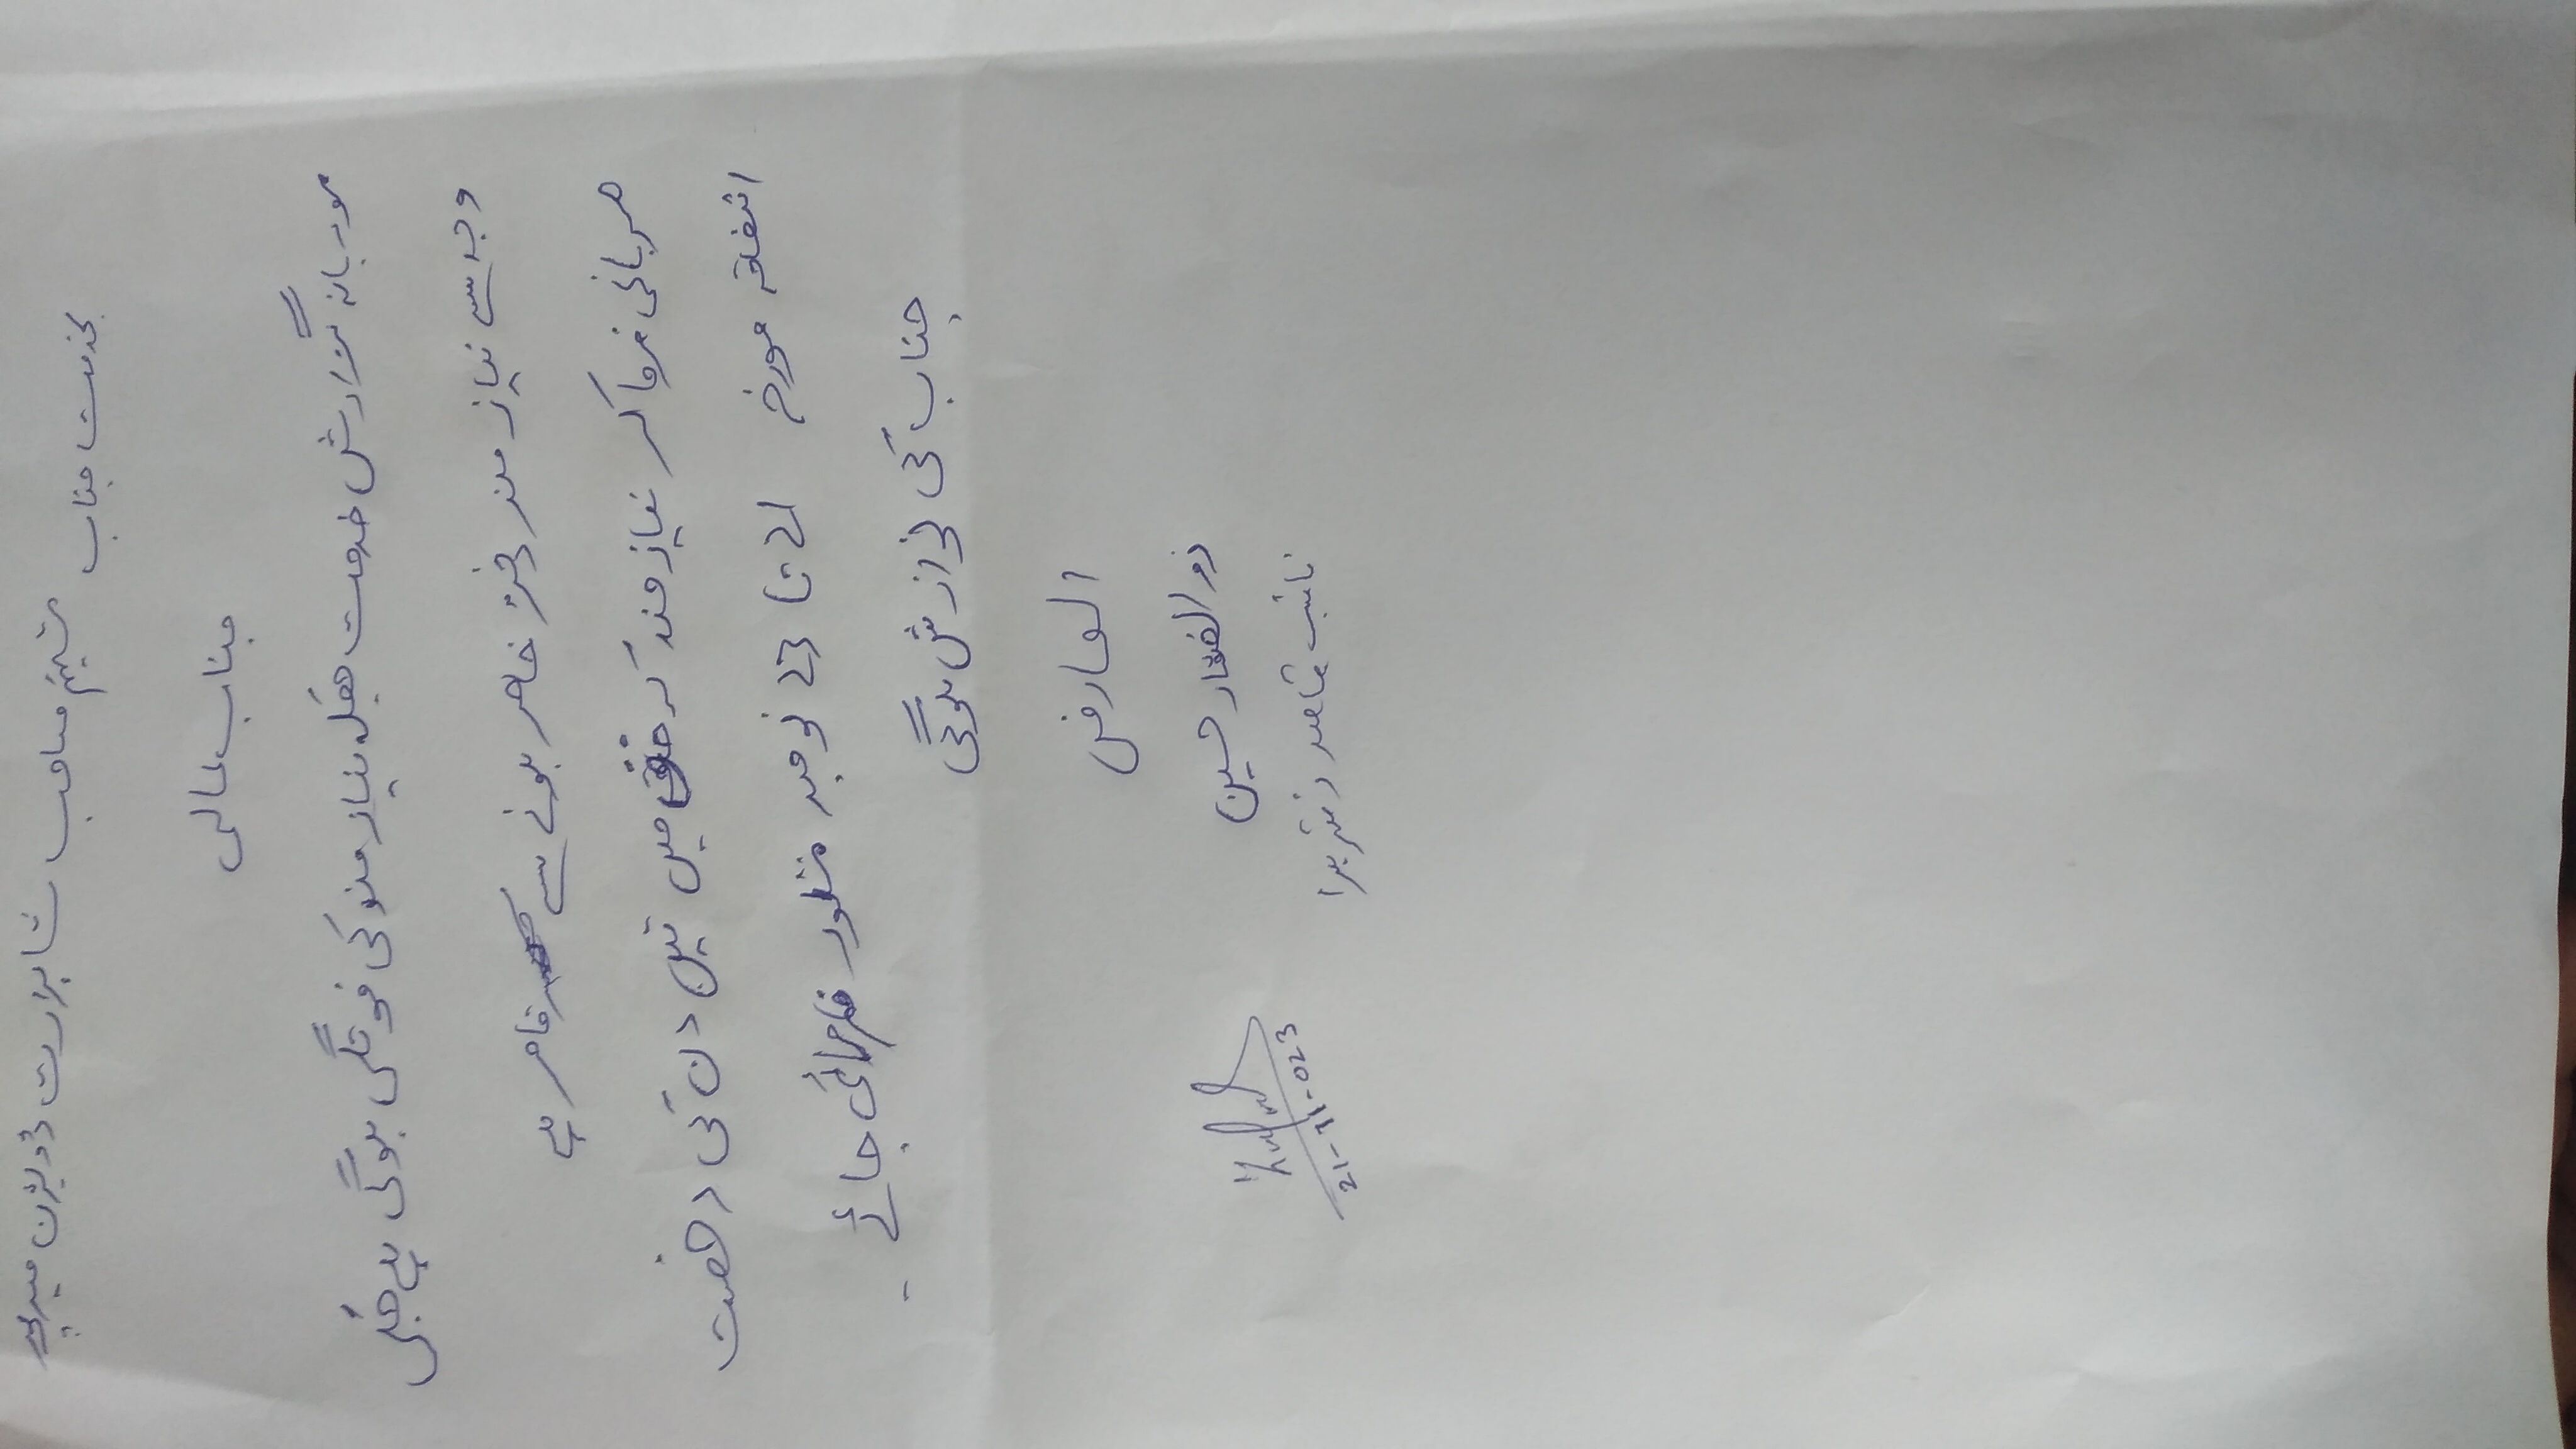 بخدمت جناب مہتمم صاحب شاہرات ڈویژن میرپور
جناب عالی
مودبانہ گزارش خدمت ہیکہ نیاز مند کی فوتگی ہوگی ہے جسکی
وجہ سے نیاز مند دفتر حاضر ہونے سے قاصر ہے
مہربانی فرما کر نیاز مند کے حق میں تین دن کی رخصت
اتفاقیہ مورخہ 21 تا 23 نومبر منظور فرمائی جائے ۔
جناب کی نوازش ہوگی
العارض
ذوالفقار حسین
نائب قاصد دفتر ہذا
21-11-023